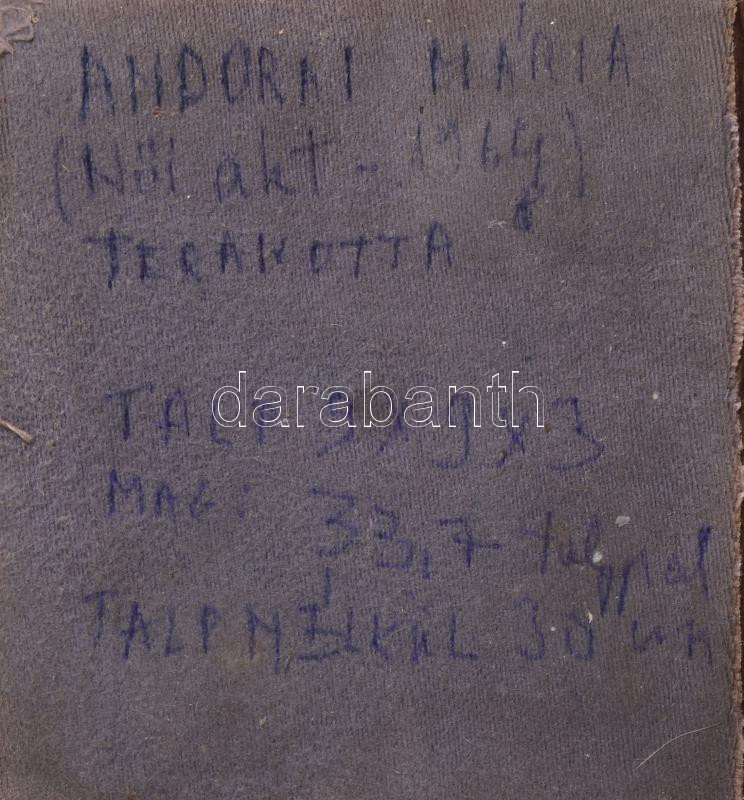 ANDORAI MÁRIA
(Női akt - 1964)
TERAKOTTA
darabanth
TALP: 9x9x3
MAG: 33,7 talppal
TALP NÉLKÜL 30 cm